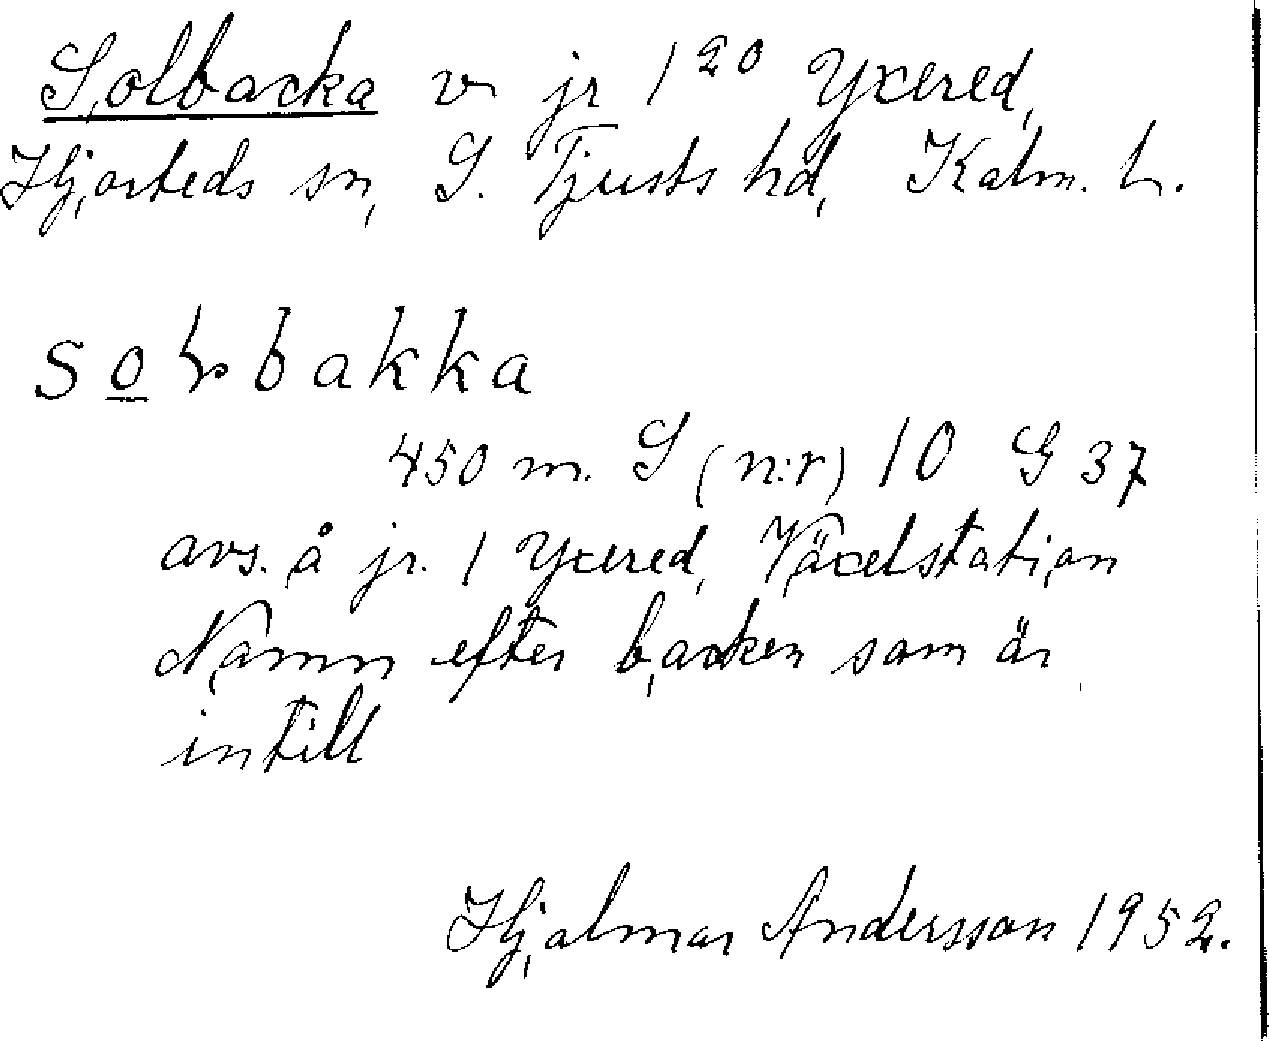 Solbacka v jr 1²⁰ Yxered,
Hjorteds sn, S. Tjusts hd, Kalm. L.
sol bakka
450 m. S (n:r) 10 G 37
avs. å jr. 1 Yxered, Växelstation
Namn efter backen som är
intill
Hjalmar Andersson 1952.